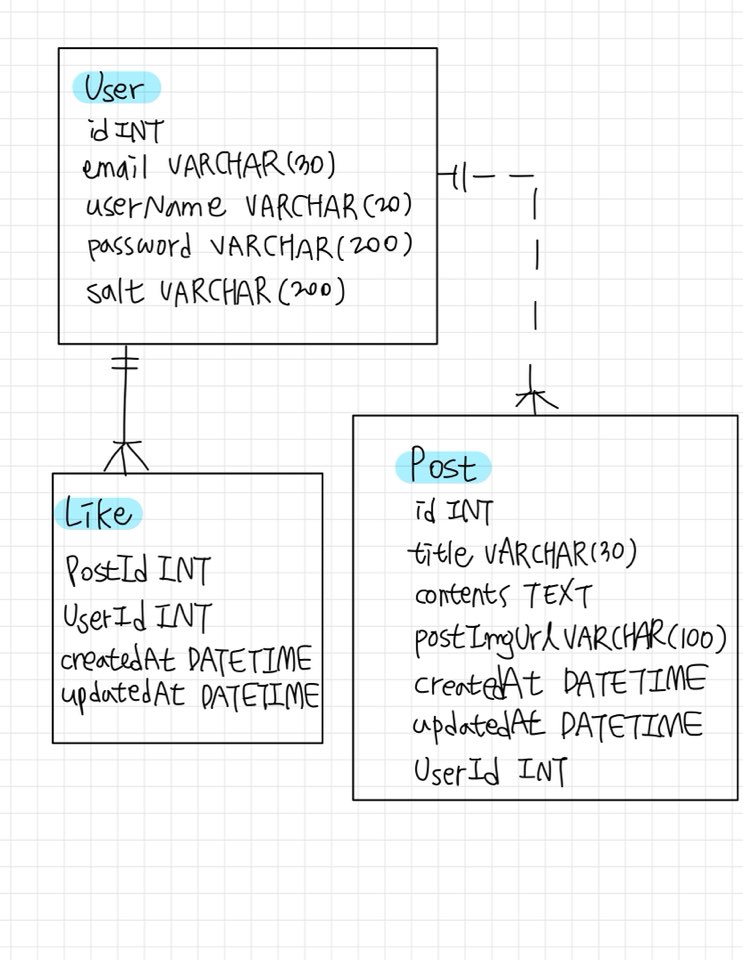 User
id INT
email VARCHAR(30)
userName VARCHAR(20)
password VARCHAR(200)
salt VARCHAR(200)
Like
PostId INT
UserId INT
createdAt DATETIME
updatedAt DATETIME
Post
id INT
title VARCHAR(30)
contents TEXT
postImgUrl VARCHAR(100)
createdAt DATETIME
updatedAt DATETIME
UserId INT